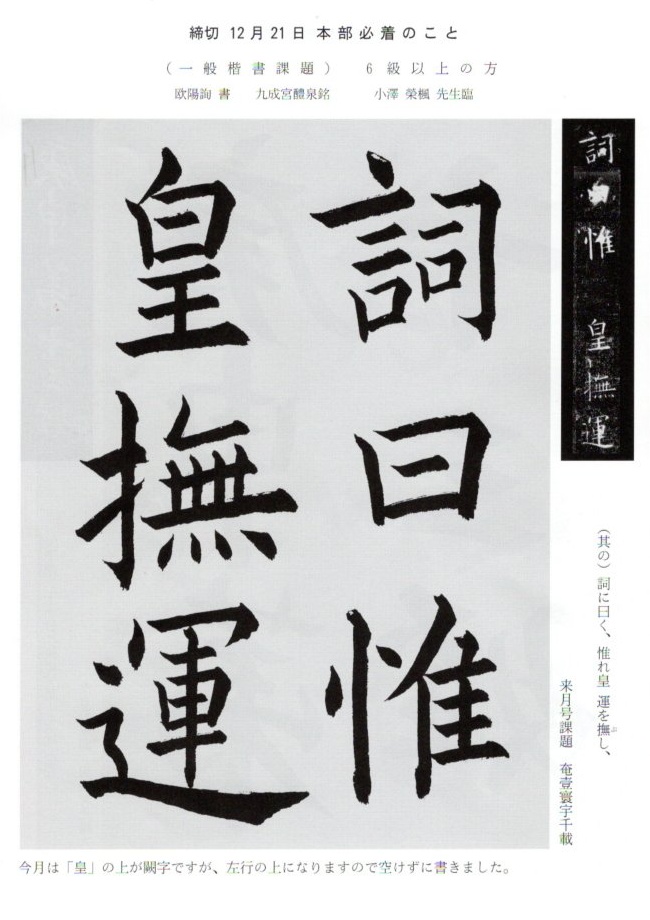 締切 12月21日 本部必着のこと
（一般楷書課題） 6級以上の方
欧陽詢 書 九成宮醴泉銘 小澤 榮楓 先生臨
詞曰惟 皇撫運
詞曰惟
皇撫運
（其の）詞に曰く、惟れ皇 運を撫し、
ぶ
来月号課題 奄壹寰宇千載
今月は「皇」の上が闕字ですが、左行の上になりますので空けずに書きました。